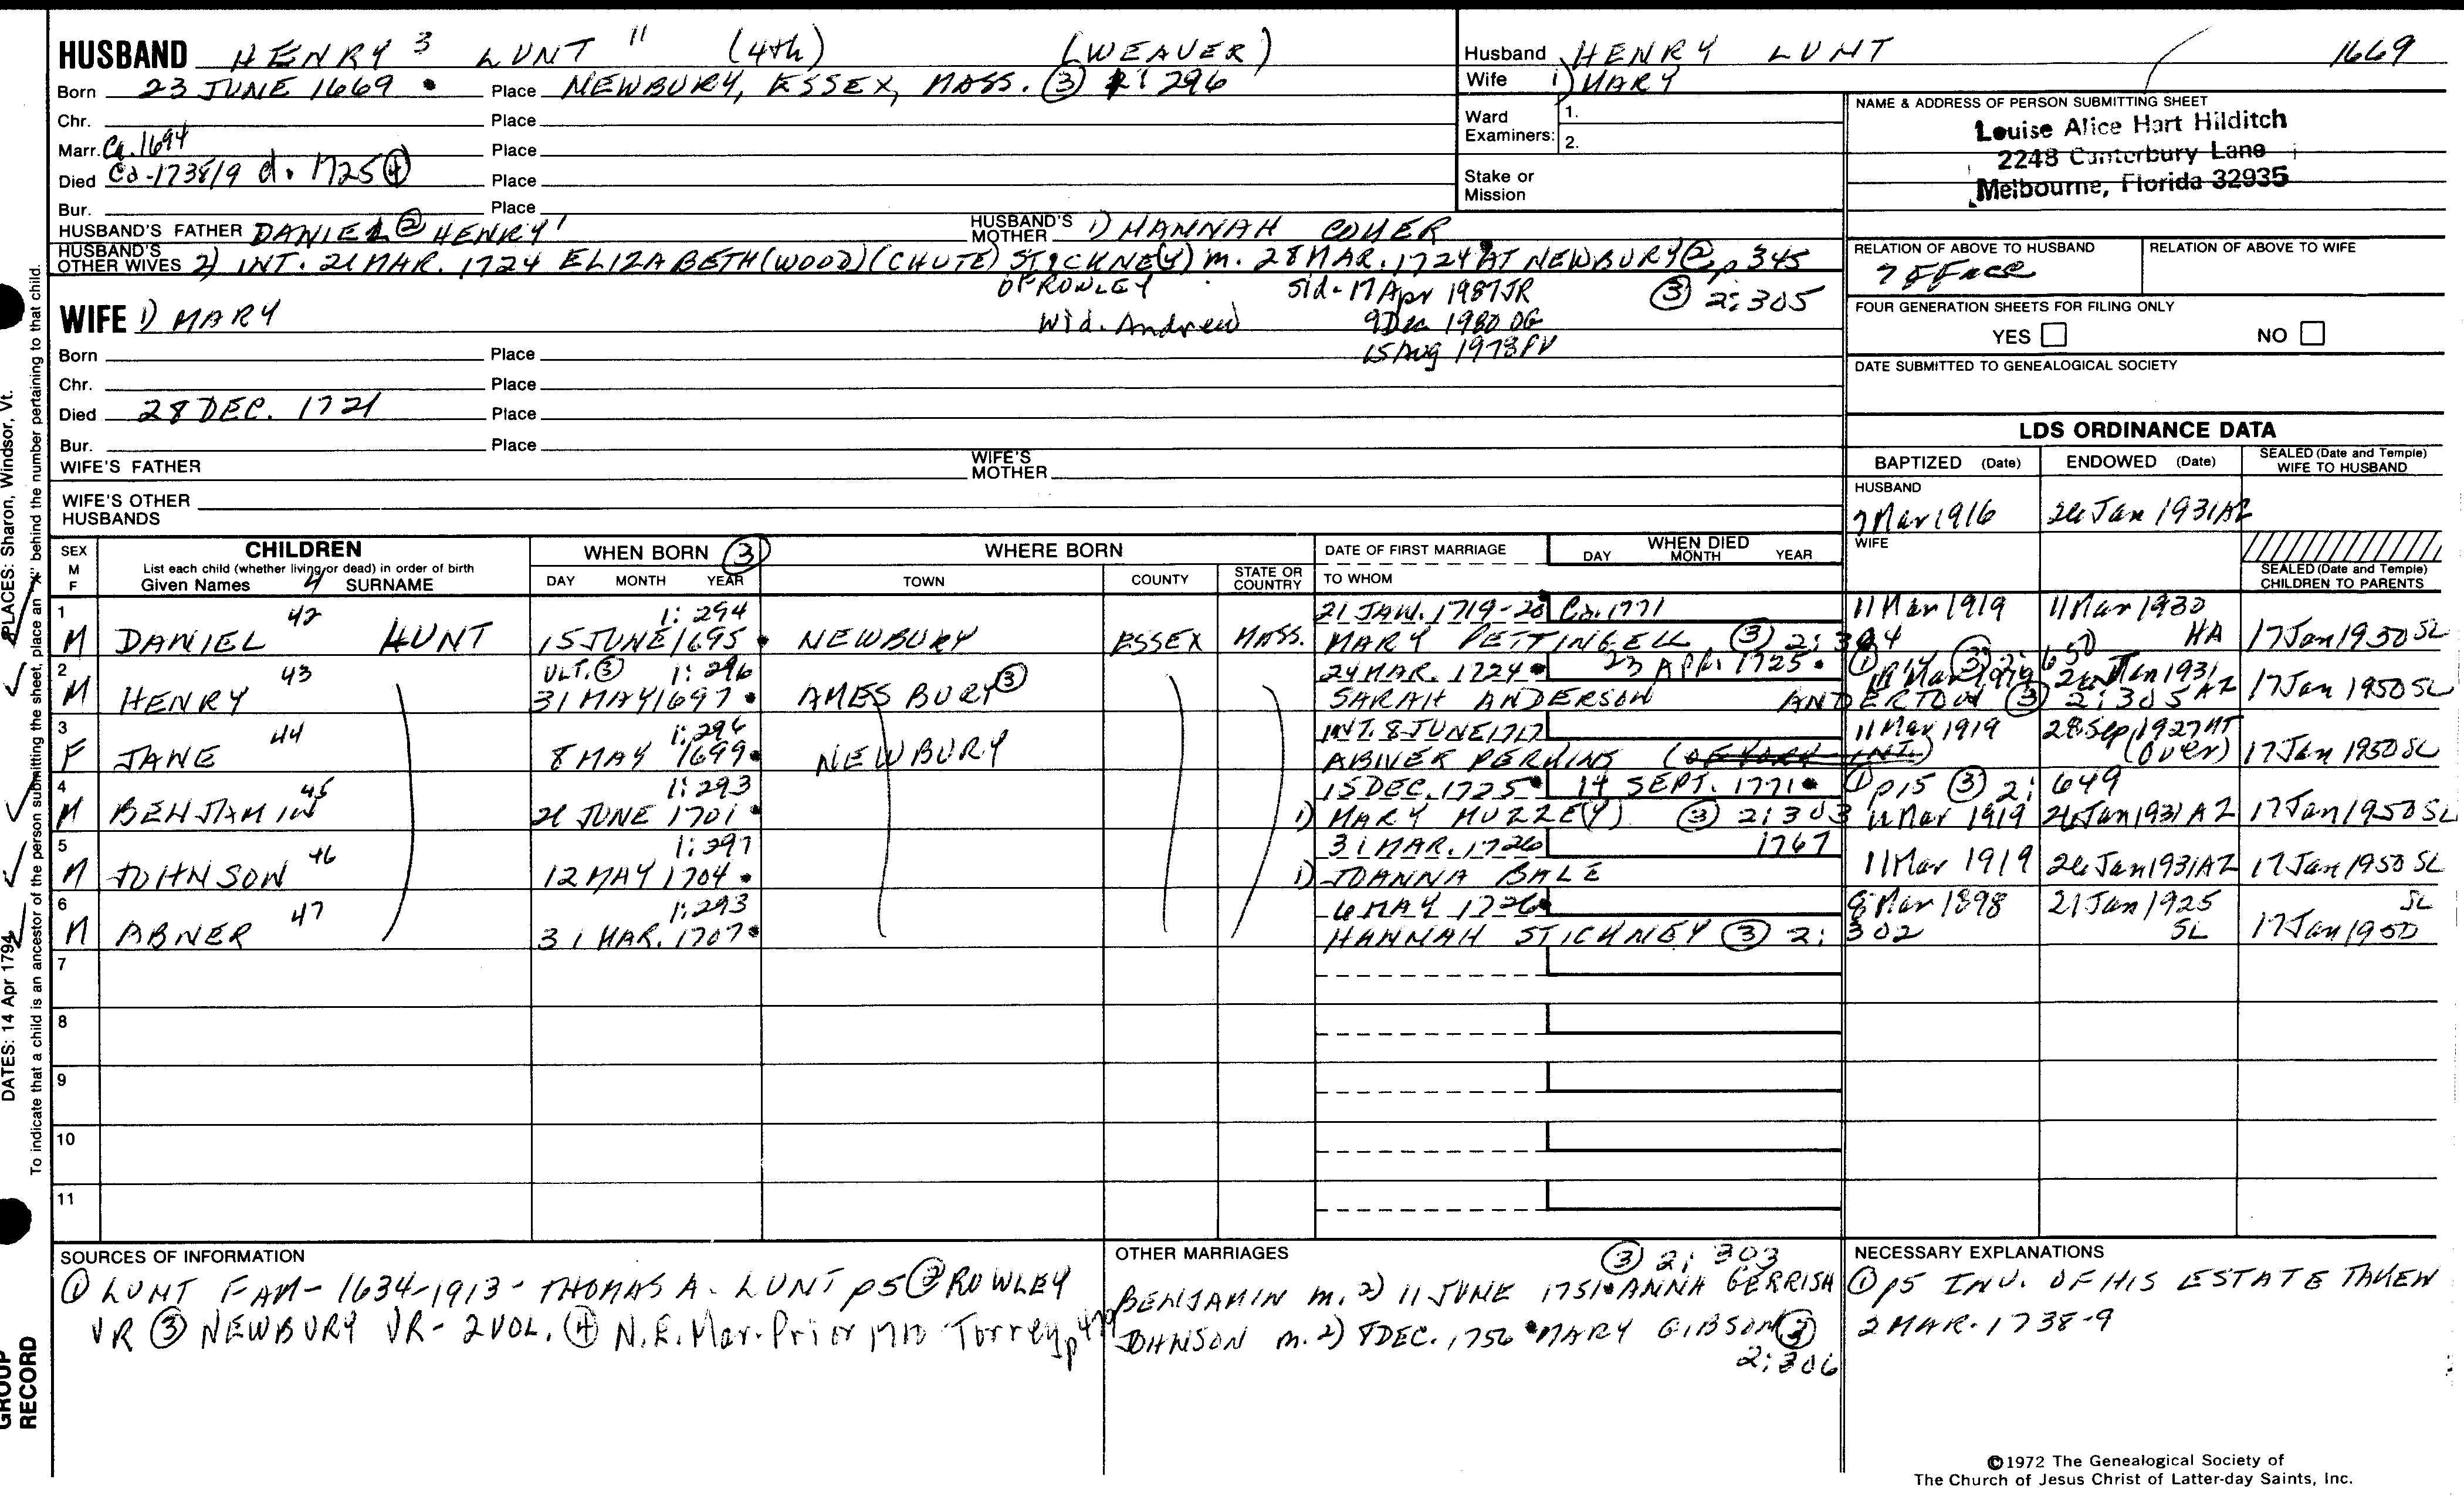 HUSBAND HENRY 3 LUNT 11 (4th) (WEAVER)
Born 23 JUNE 1669 • Place NEWBURY, ESSEX, MASS. ③ 1: 296
Chr. Place
Marr. Ca. 1694 Place
Died Ca-1738/9 d. 1725 ④ Place
Bur. Place
HUSBAND'S FATHER DANIEL ② HENRY 1 HUSBAND'S MOTHER 1) HANNAH COKER
HUSBAND'S OTHER WIVES 2) INT. 21 MAR. 1724 ELIZABETH (WOOD) (CHUTE) STICKNE(Y) m. 28 MAR. 1724 AT NEWBURY ② p 345
OF ROWLEY Sld- 17 Apr 1987 JR ③ 2: 305
WIFE 1) MARY Wid. Andrew 9 Dec 1980 OG
15 Aug 1978 PV
Born Place
Chr. Place
Died 28 DEC. 1721 Place
Bur. Place
WIFE'S FATHER WIFE'S MOTHER
WIFE'S OTHER HUSBANDS
Husband HENRY LUNT / 1669
Wife 1) MARY
Ward Examiners: 1.
2.
Stake or Mission
NAME & ADDRESS OF PERSON SUBMITTING SHEET
Louise Alice Hart Hilditch
2248 Canterbury Lane
Melbourne, Florida 32935
RELATION OF ABOVE TO HUSBAND RELATION OF ABOVE TO WIFE
FOUR GENERATION SHEETS FOR FILING ONLY
YES NO
DATE SUBMITTED TO GENEALOGICAL SOCIETY
LDS ORDINANCE DATA
BAPTIZED (Date) ENDOWED (Date) SEALED (Date and Temple) WIFE TO HUSBAND
HUSBAND
7 Mar 1916 26 Jan 1931 AZ
WIFE
SEALED (Date and Temple) CHILDREN TO PARENTS
SEX M F CHILDREN WHEN BORN ③ WHERE BORN DATE OF FIRST MARRIAGE WHEN DIED
List each child (whether living or dead) in order of birth
Given Names 4 SURNAME DAY MONTH YEAR TOWN COUNTY STATE OR COUNTRY TO WHOM DAY MONTH YEAR
1 42 1: 294 21 JAN. 1719-20 Ca. 1771 11 Mar 1919 11 Mar 1930
M DANIEL LUNT 15 JUNE 1695 • NEWBURY ESSEX MASS. MARY PETTINGELL ③ 2: 304 HA 17 Jan 1950 SL
2 43 ULT. ③ 1: 296 24 MAR. 1724 • 23 APR. 1725 • ① p 14 ③ 2: 650
M HENRY 31 MAY 1697 • AMESBURY ③ SARAH ANDERSON ANDERTON ③ 2: 305 11 Mar 1919 26 Jan 1931 AZ 17 Jan 1950 SL
3 44 1: 296 INT. 8 JUNE 1717 11 Mar 1919 28 Sep 1927 MT
F JANE 8 MAY 1699 • NEWBURY ABNER PERKINS (OF YORK INT.) (over) 17 Jan 1950 SL
4 45 1: 293 15 DEC. 1725 • 14 SEPT. 1771 • ① p 15 ③ 2: 649
M BENJAMIN 21 JUNE 1701 • 1) MARY MUZZE(Y) ③ 2: 303 11 Mar 1919 26 Jan 1931 AZ 17 Jan 1950 SL
5 46 1: 297 31 MAR. 1726 1767
M JOHNSON 12 MAY 1704 • 1) JOANNA BALE 11 Mar 1919 26 Jan 1931 AZ 17 Jan 1950 SL
6 47 1: 293 6 MAY 1726 • 8 Mar 1898 21 Jan 1925 SL
M ABNER 31 MAR. 1707 • HANNAH STICKNEY ③ 2: 302 SL 17 Jan 1950
7
8
9
10
11
SOURCES OF INFORMATION
① LUNT FAM- 1634-1913 - THOMAS A. LUNT p5 ② ROWLEY
VR ③ NEWBURY VR- 2 VOL. ④ N.E. Mar. Prior 1710 Torrey p 477
OTHER MARRIAGES ③ 2: 303
BENJAMIN m. 2) 11 JUNE 1751 • ANNA GERRISH
JOHNSON m. 2) 8 DEC. 1756 • MARY GIBSON ③
2: 306
NECESSARY EXPLANATIONS
① p5 INV. OF HIS ESTATE TAKEN
2 MAR. 1738-9
©1972 The Genealogical Society of
The Church of Jesus Christ of Latter-day Saints, Inc.
PLACES: Sharon, Windsor, Vt.
DATES: 14 Apr 1794
To indicate that a child is an ancestor of the person submitting the sheet, place an "X" behind the number pertaining to that child.
GROUP
RECORD